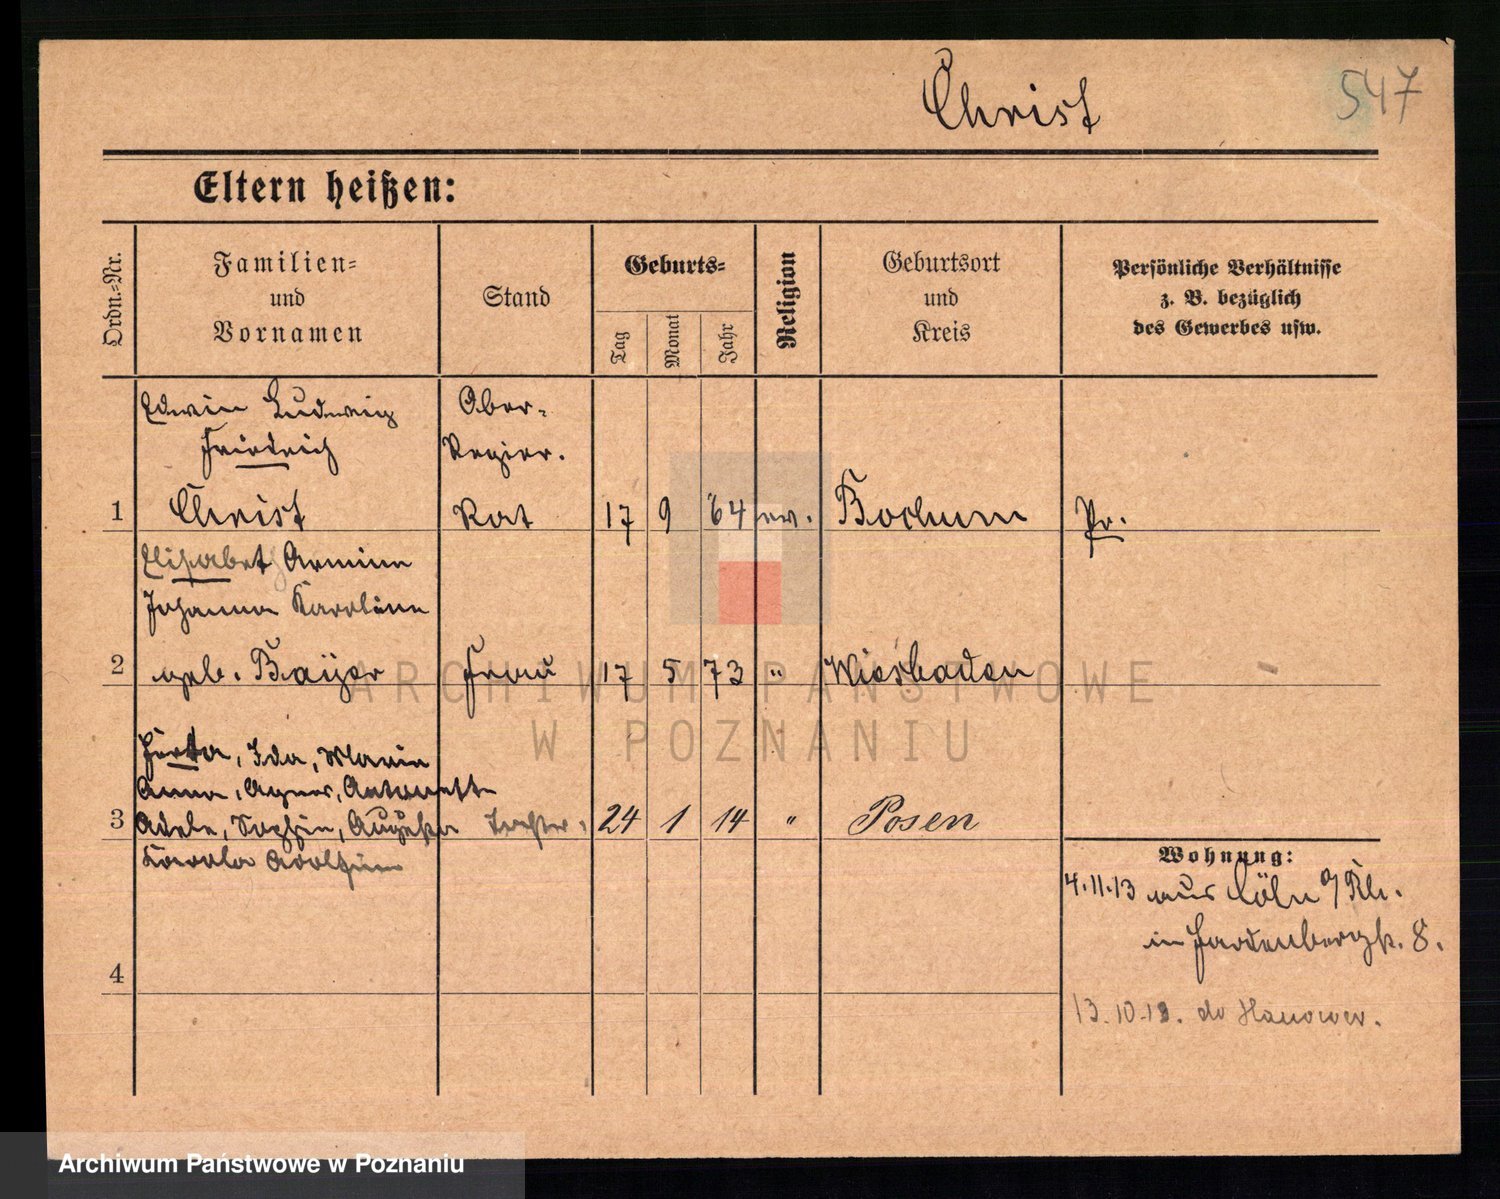 Christ
547
Eltern heißen:
Ordn.-Nr.
Familien-
und
Vornamen
Stand
Geburts-
Tag
Monat
Jahr
Religion
Geburtsort
und
Kreis
Persönliche Verhältnisse
z. B. bezüglich
des Gewerbes usw.
Edwin Ludwig Ober-
Friedrich Regier.
1 Christ Rat 17 9 64 ev. Bochum Pr.
Elisabeth Armine
Johanna Karoline
2 geb. Bayer Frau 17 5 73 " Wiesbaden
Herta, Ida, Maria
Anna, Agnes, Antonette
3 Adele, Sophie, Auguste Tochter, 24 1 14 " Posen
Karola Adolfine
Wohnung:
4.11.13 aus Cöln a/Rh.
in Hardenbergstr. 8.
4
13.10.19. do Hanower.
ARCHIWUM PAŃSTWOWE
W POZNANIU
Archiwum Państwowe w Poznaniu